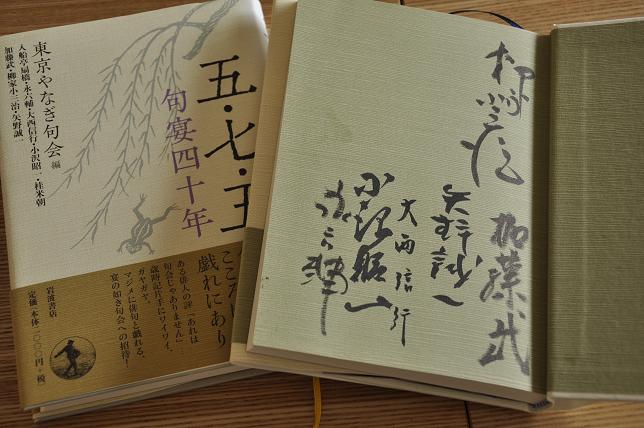 五・七・五
句宴四十年
東京やなぎ句会 編
入船亭扇橋・永六輔・大西信行・小沢昭一・桂米朝
加藤武・柳家小三治・矢野誠一
戯れにあり
ある俳人の評「あれは
句会じゃありません」…
歳時記片手にワイワイ
ガヤガヤ、
マジメに俳句と戯れる、
宴の如き句会への招待!
岩波書店
定価(本体二〇〇〇円+税)
柳家小三治
加藤武
矢野誠一
大西信行
小沢昭一
永六輔